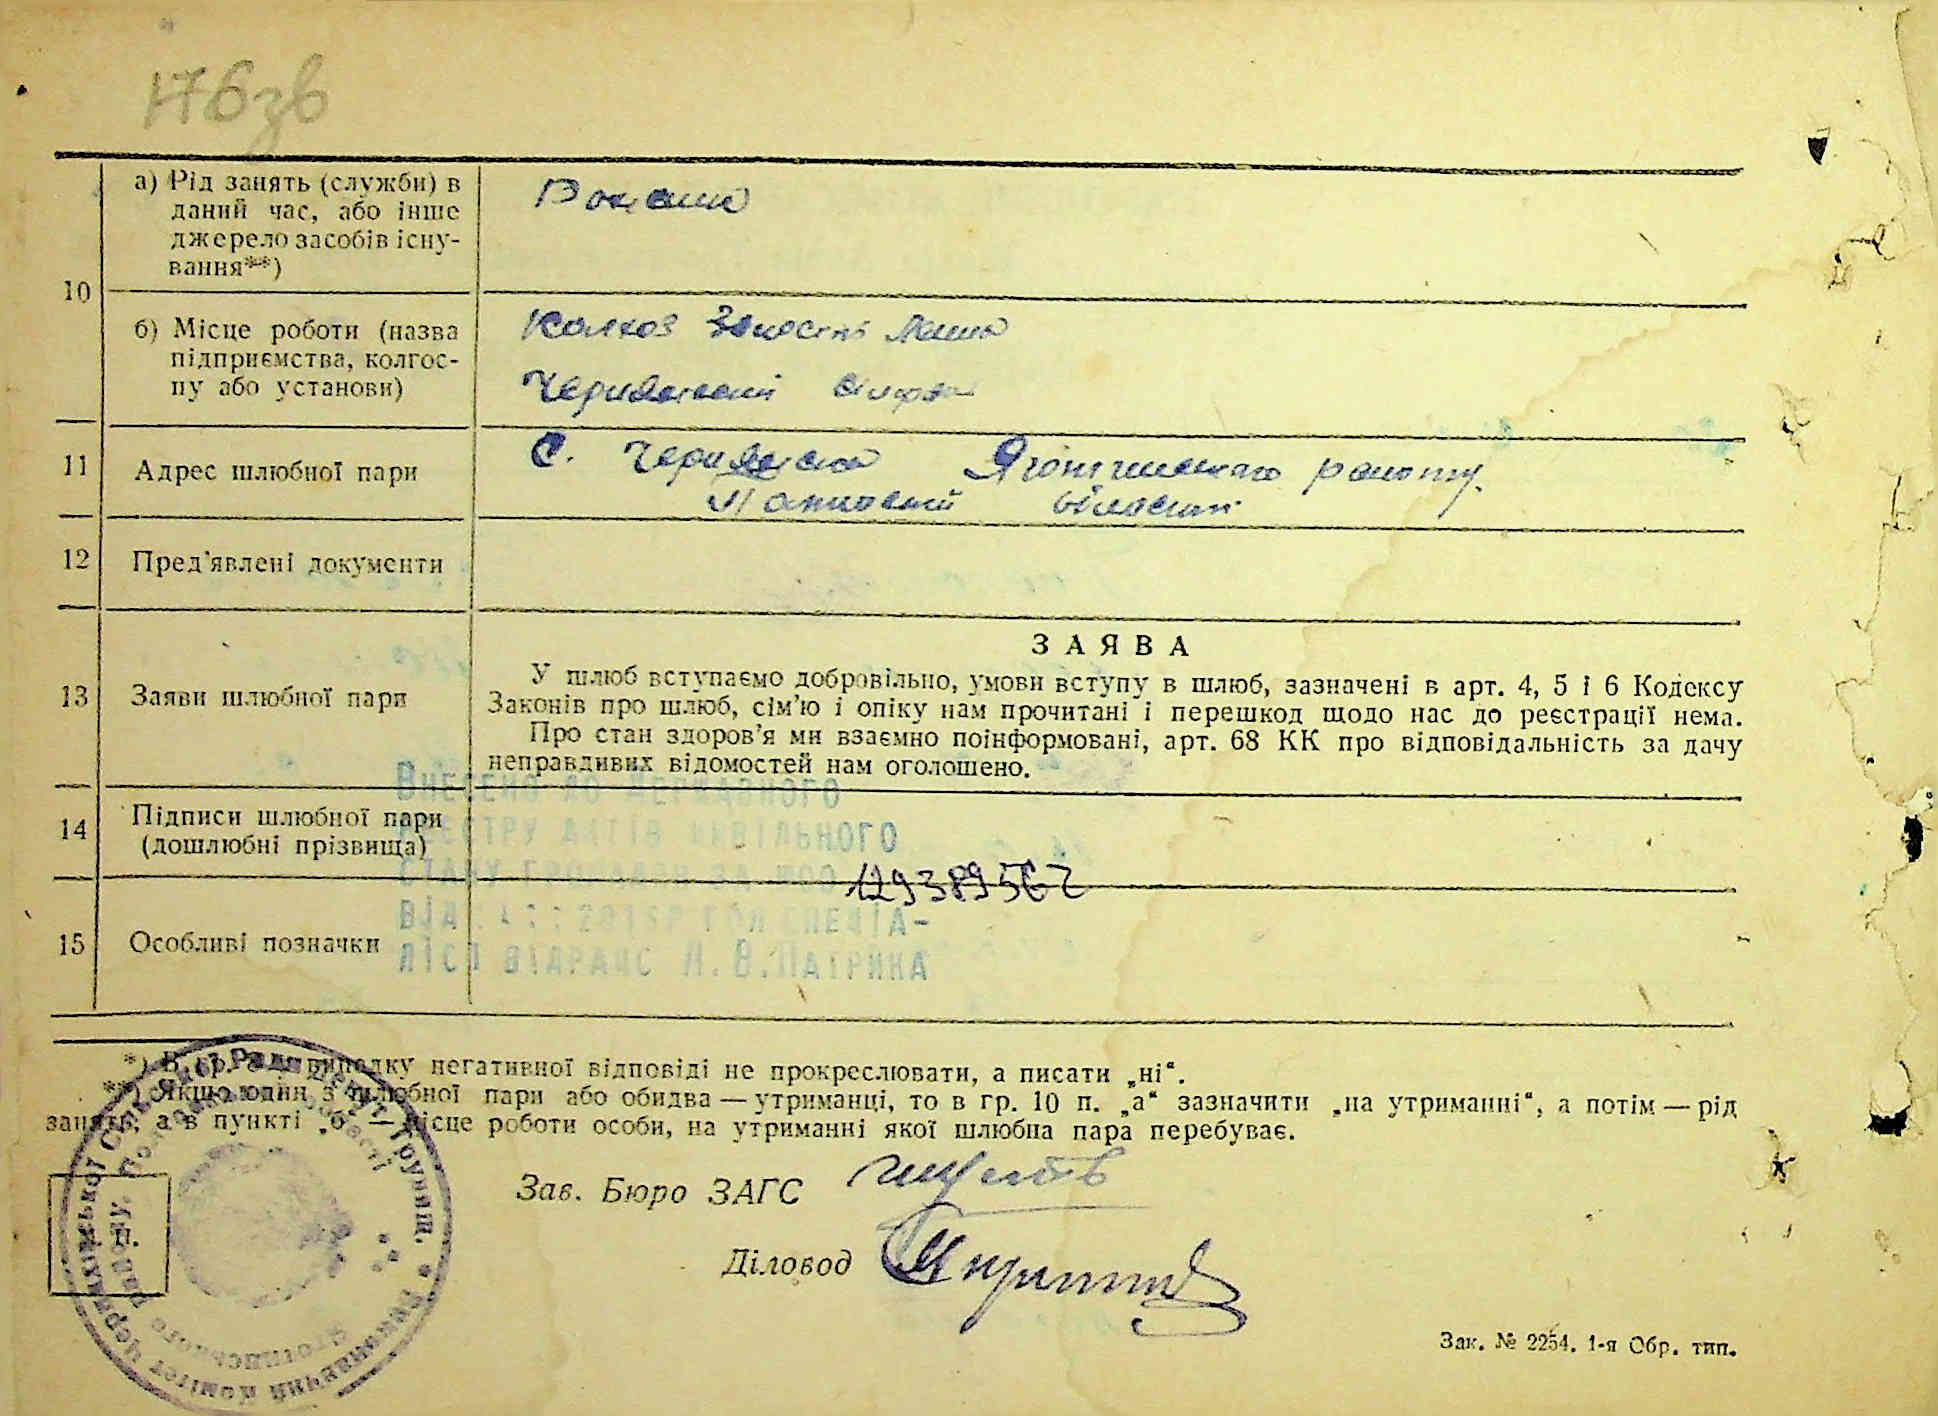 176зв
а) Рід занять (служби) в
даний час, або інше
джерело засобів існу-
вання**)
10
б) Місце роботи (назва
підприємства, колгос-
пу або установи)
Колхоз
11
Адрес шлюбної пари
С. Яготинського району.
області
12
Пред'явлені документи
13
Заяви шлюбної пари
ЗАЯВА
У шлюб вступаємо добровільно, умови вступу в шлюб, зазначені в арт. 4, 5 і 6 Кодексу
Законів про шлюб, сім'ю і опіку нам прочитані і перешкод щодо нас до реєстрації нема.
Про стан здоров'я ми взаємно поінформовані, арт. 68 КК про відповідальність за дачу
неправдивих відомостей нам оголошено.
14
Підписи шлюбної пари
(дошлюбні прізвища)
15
Особливі позначки
Внесено до Державного
реєстру актів цивільного
стану громадян за №00 129389567
від
ліст ВДРАЦС Н.В.Патрика
*) В гр. 8 у випадку негативної відповіді не прокреслювати, а писати „ні“.
**) Якщо один з шлюбної пари або обидва — утриманці, то в гр. 10 п. „а“ зазначити „на утриманні“, а потім — рід
занять, а в пункті „б“ — місце роботи особи, на утриманні якої шлюбна пара перебуває.
Зав. Бюро ЗАГС
Діловод
М. П.
Виконавчий Комітет Сільської Ради депут. трудящ.
Яготинського району, Полтавської області
Зак. № 2254. 1-я Обр. тип.